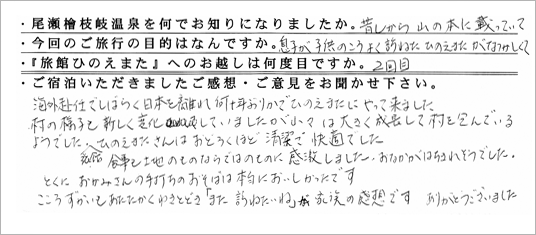 ・尾瀬檜枝岐温泉を何でお知りになりましたか。昔しから 山の本に載っていて
・今回のご旅行の目的はなんですか。息子が子供のころよく訪ねた ひのえまたがなつかしくて
・『旅館ひのえまた』へのお越しは何度目ですか。2回目
・ご宿泊いただきましたご感想・ご意見をお聞かせ下さい。
海外赴任でしばらく日本を離れ 何十年ぶりかでひのえまたにやって来ました
村の様子も 新しく変化していましたが 木々は 大きく成長して 村を包んでいる
ようでした。ひのえまたさんは おどろくほど 清潔で 快適でした
食事も土地のものならではのものに 感激しました。おなかがはちきれそうでした。
とくに おかみさんの手打ちのおそばは 本当においしかったです
こころづかいも あたたかく ゆきとどき「また 訪ねたいね」が 家族の感想です ありがとうございました